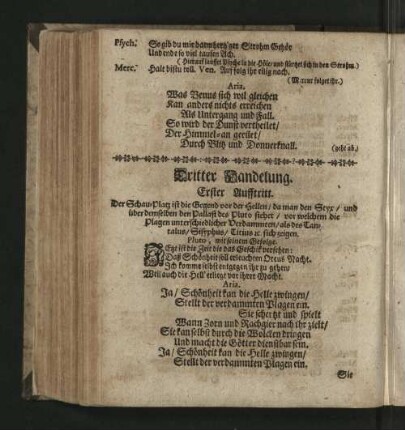 Psych. So gib du mir barmhertz'ger Strohm Gehör
Und ende so viel tausen Ach.
(Hierauf lauffet Psyche in die Höle und stürtzet sich in den Strohm.)
Merc. Halt bistu toll. Ven. Auf folg ihr eilig nach.
(Mercur folget ihr.)
Aria.
Was Venus sich wil gleichen
Kan anders nichts erreichen
Als Untergang und Fall.
So wird der Dunst vertheilet/
Der Himmel-an geeilet/
Durch Blitz und Donnerknall.
(geht ab.)
Dritter Handelung.
Erster Aufftritt.
Der Schau-Platz ist die Gegend vor der Hellen/ da man den Styx/ und
über demselben den Pallast des Pluto siehet/ vor welchem die
Plagen unterschiedlicher Verdammten/ als des Tan-
talus/ Sisyphus/ Titius ꝛc sich zeigen.
Pluto, mit seinem Gefolge.
JEtzt ist die Zeit die das Geschick versehen:
Daß Schönheit soll erleuchten Orcus Nacht.
Ich komme selbst entgegen ihr zu gehen/
Weil auch die Hell' erliegt vor ihrer Macht.
Aria.
Ja/ Schönheit kan die Helle zwingen/
Stellt der verdammten Plagen ein.
Sie schertzt und spielt
Wann Zorn und Rachgier nach ihr zielt/
Sie kan selbst durch die Wolcken dringen
Und macht die Götter dienstbar sein.
Ja/ Schönheit kan die Helle zwingen/
Stellt der verdammten Plagen ein.
Sie